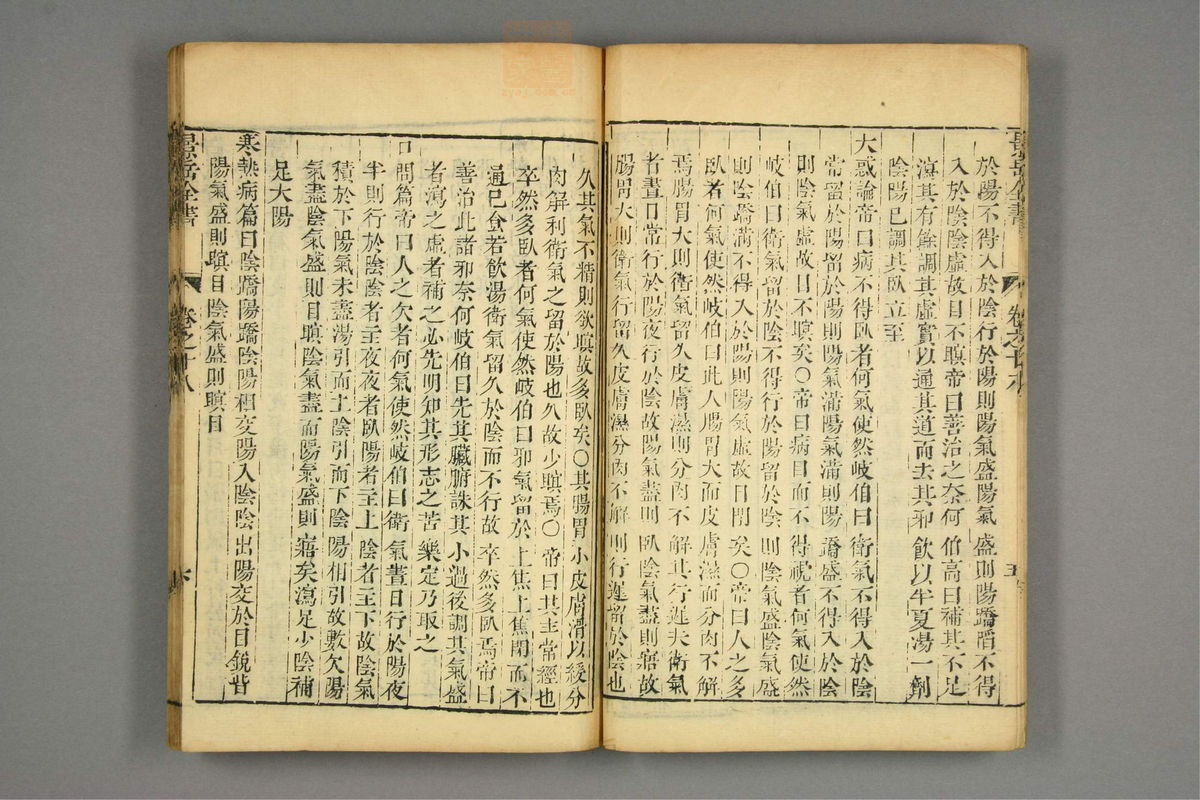 景岳全書
卷之十八
五
於陽不得入於陰行於陽則陽氣盛陽氣盛則陽蹻滔不得
入於陰陰虛故目不瞑帝曰善治之奈何伯高曰補其不足
瀉其有餘調其虛實以通其道而去其邪飲以半夏湯一劑
陰陽已調其臥立至
大惑論帝曰病不得臥者何氣使然岐伯曰衛氣不得入於陰
常留於陽留於陽則陽氣滿陽氣滿則陽蹻盛不得入於陰
則陰氣虛故目不瞑矣○帝曰病目而不得視者何氣使然
岐伯曰衛氣留於陰不得行於陽留於陰則陰氣盛陰氣盛
則陰蹻滿不得入於陽則陽氣虛故目閉矣○帝曰人之多
臥者何氣使然岐伯曰此人腸胃大而皮膚濕而分肉不解
焉腸胃大則衛氣留久皮膚濕則分肉不解其行遲夫衛氣
者晝日常行於陽夜行於陰故陽氣盡則臥陰氣盡則寤故
腸胃大則衛氣行留久皮膚濕分肉不解則行遲留於陰也
久其氣不精則欲瞑故多臥矣○其腸胃小皮膚滑以緩分
肉解利衛氣之留於陽也久故少瞑焉○帝曰其主常經也
卒然多臥者何氣使然岐伯曰邪氣留於上焦上焦閉而不
通已食若飲湯衛氣留久於陰而不行故卒然多臥焉帝曰
善治此諸邪奈何岐伯曰先其臟腑誅其小過後調其氣盛
者瀉之虛者補之必先明知其形志之苦樂定乃取之
口問篇帝曰人之欠者何氣使然岐伯曰衛氣晝日行於陽夜
半則行於陰陰者主夜夜者臥陽者主上陰者主下故陰氣
積於下陽氣未盡陽引而上陰引而下陰陽相引故數欠陽
氣盡陰氣盛則目瞑陰氣盡而陽氣盛則寤矣瀉足少陰補
足太陽
寒熱病篇曰陰蹻陽蹻陰陽相交陽入陰陰出陽交於目銳眥
陽氣盛則瞋目陰氣盛則瞑目
景岳全書
卷之十八
六